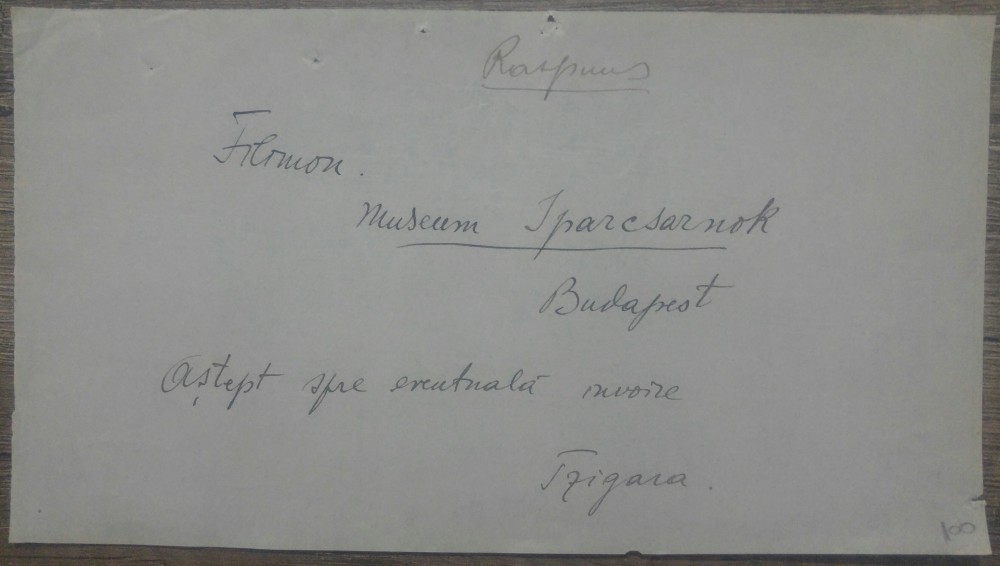 Raspuns
Filimon.
Museum Iparcsarnok
Budapest
Aștept spre eventuală invoire
Tzigara.
100